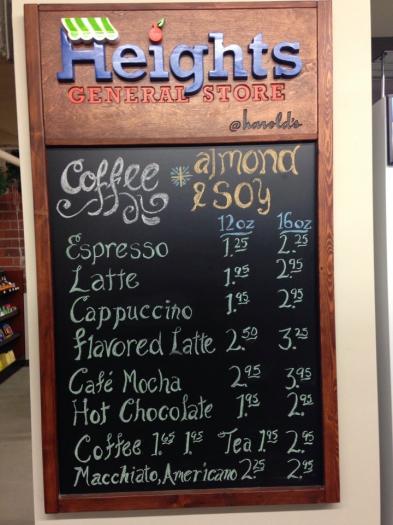 Heights
GENERAL STORE
@harold's
Coffee * almond
& SOY
12oz 16oz
Espresso 1.25 2.25
Latte 1.95 2.95
Cappuccino 1.95 2.95
flavored Latte 2.50 3.25
Café Mocha 2.95 3.95
Hot Chocolate 1.95 2.95
Coffee 1.65 1.95 Tea 1.95 2.95
Macchiato, Americano 2.25 2.95